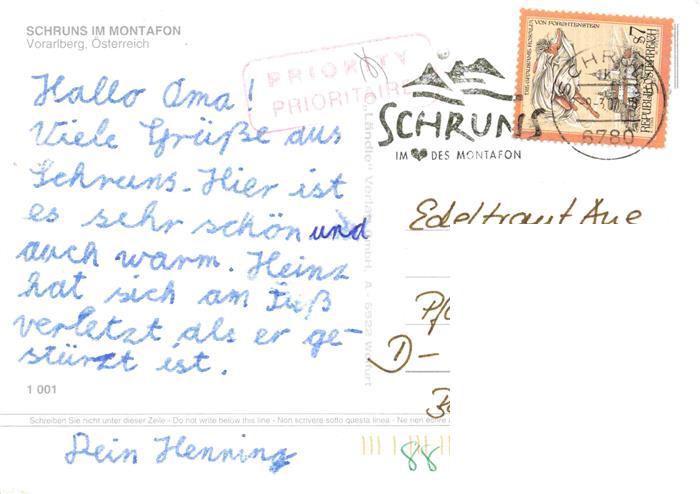 SCHRUNS IM MONTAFON
Vorarlberg, Österreich
Hallo Oma!
Viele Grüße aus
Schruns. Hier ist
es sehr schön und
auch warm. Heinz
hat sich am Fuß
verletzt als er ge-
stürzt ist.
1 001
Schreiben Sie nicht unter dieser Zeile - Do not write below this line - Non scrivere sotto questa linea - Ne rien écrire
Dein Henning
PRIORITY
PRIORITAIRE
SCHRUNS
IM DES MONTAFON
VON FORCHTENSTEIN
S7
REPUBLIK ÖSTERREICH
SCHRUNS
6780
"Ländle" Verlag GmbH, A - 6922 Wolfurt
Edeltraut Aue
D-
88